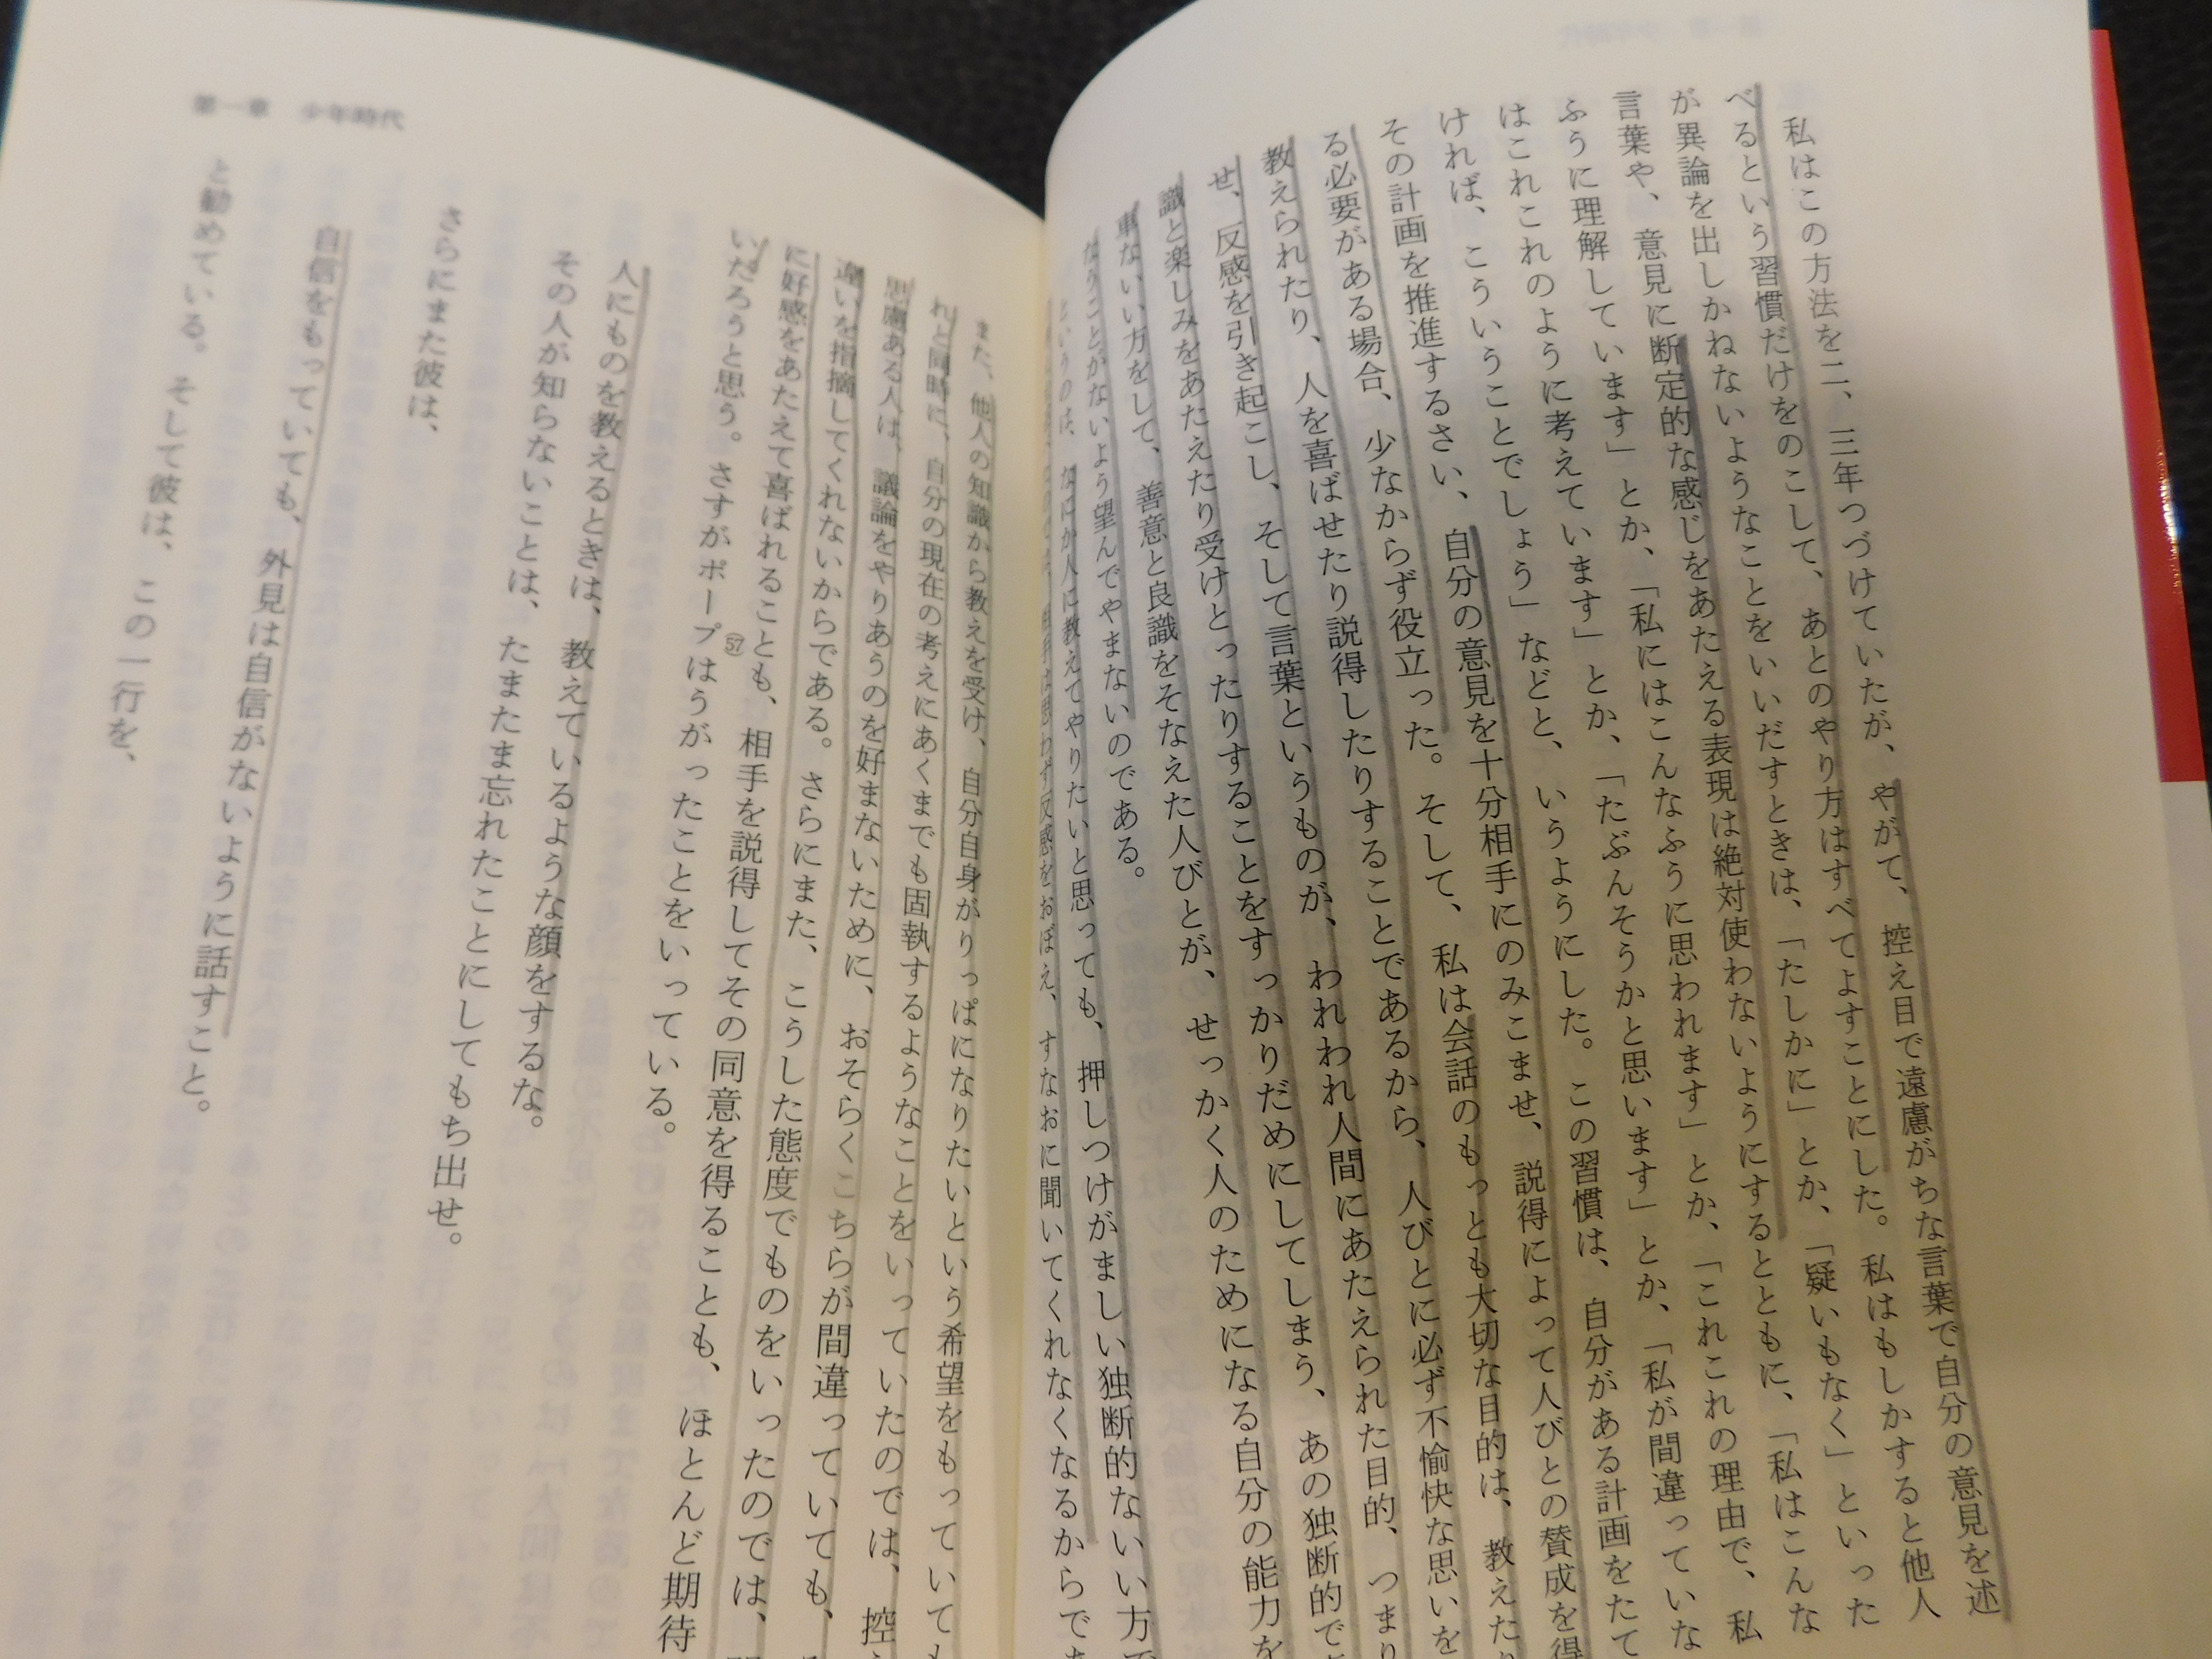 私はこの方法を二、三年つづけていたが、やがて、控え目で遠慮がちな言葉で自分の意見を述
べるという習慣だけをのこして、あとのやり方はすべてよすことにした。私はもしかすると他人
が異論を出しかねないようなことをいいだすときは、「たしかに」とか、「疑いもなく」といった
言葉や、意見に断定的な感じをあたえる表現は絶対使わないようにするとともに、「私はこんな
ふうに理解しています」とか、「私にはこんなふうに思われます」とか、「これこれの理由で、私
はこれこれのように考えています」とか、「たぶんそうかと思います」とか、「私が間違っていな
ければ、こういうことでしょう」などと、いうようにした。この習慣は、自分がある計画をたて
その計画を推進するさい、自分の意見を十分相手にのみこませ、説得によって人びとの賛成を得
る必要がある場合、少なからず役立った。そして、私は会話のもっとも大切な目的は、教えた
教えられたり、人を喜ばせたり説得したりすることであるから、人びとに必ず不愉快な思いを
せ、反感を引き起こし、そして言葉というものが、われわれ人間にあたえられた目的、つまり
識と楽しみをあたえたり受けとったりすることをすっかりだめにしてしまう、あの独断的で
事ないい方をして、善意と良識をそなえた人びとが、せっかく人のためになる自分の能力を
なうことがないよう望んでやまないのである。
というのは、なにか人に教えてやりたいと思っても、押しつけがましい独断的ないい方で
相手は思わず反感をおぼえ、すなおに聞いてくれなくなるからで
第一章 少年時代
また、他人の知識から教えを受け、自分自身がりっぱになりたいという希望をもっていても
れと同時に、自分の現在の考えにあくまでも固執するようなことをいっていたのでは、控
思慮ある人は、議論をやりあうのを好まないために、おそらくこちらが間違っていても、
違いを指摘してくれないからである。さらにまた、こうした態度でものをいったのでは、
に好感をあたえて喜ばれることも、相手を説得してその同意を得ることも、ほとんど期待
いだろうと思う。さすがポープ㊼はうがったことをいっている。
人にものを教えるときは、教えているような顔をするな。
その人が知らないことは、たまたま忘れたことにしてもち出せ。
さらにまた彼は、
自信をもっていても、外見は自信がないように話すこと。
と勧めている。そして彼は、この一行を、